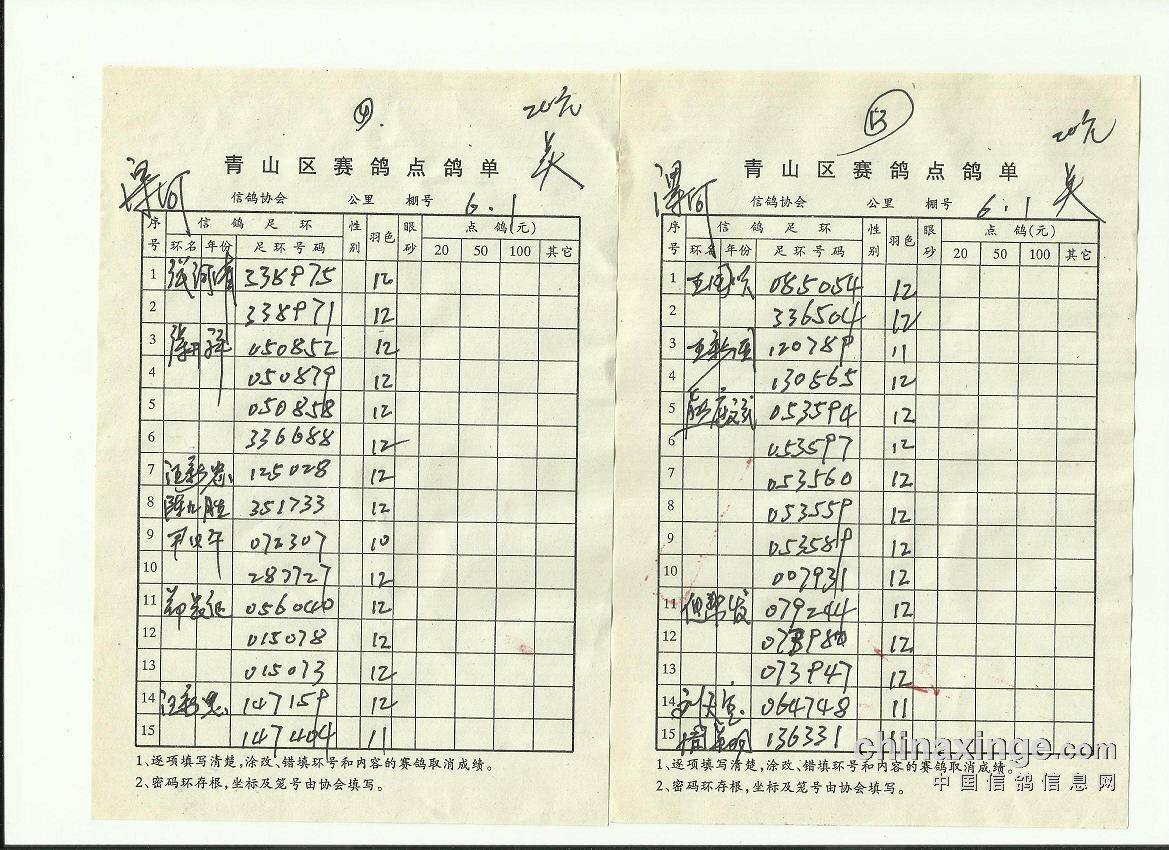 ④.
20元
关
青山区赛鸽点鸽单
漯河
信鸽协会 公里 棚号 6.1
序号 信鸽足环 性别 羽色 眼砂 点鸽(元)
环名 年份 足环号码 20 50 100 其它
1 338975 12
2 338971 12
3 050852 12
4 050879 12
5 050858 12
6 336688 12
7 汪新忠 125028 12
8 351733 12
9 072307 10
10 280727 12
11 056040 12
12 015078 12
13 015073 12
14 147159 12
15 147404 11
1、逐项填写清楚,涂改、错填环号和内容的赛鸽取消成绩。
2、密码环存根,坐标及笼号由协会填写。
20元
关
青山区赛鸽点鸽单
漯河
信鸽协会 公里 棚号 6.1
序号 信鸽足环 性别 羽色 眼砂 点鸽(元)
环名 年份 足环号码 20 50 100 其它
1 085054 12
2 336504 12
3 120789 11
4 130565 12
5 053594 12
6 053597 12
7 053560 12
8 053559 12
9 053589 12
10 007931 12
11 079244 12
12 12
13 073947 12
14 064748 11
15 136331 11
1、逐项填写清楚,涂改、错填环号和内容的赛鸽取消成绩。
2、密码环存根,坐标及笼号由协会填写。
chinaxinge.com
中国信鸽信息网